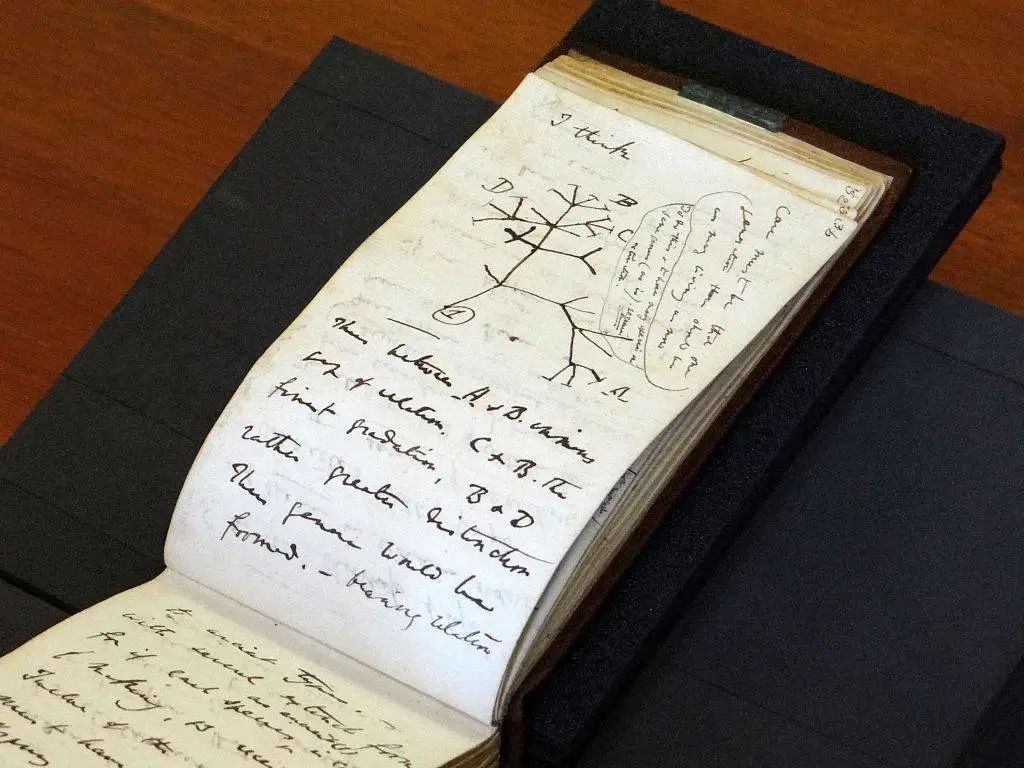 I think
D
B
C
Case must be that
one generation then should be
as many living as now
To do this & to have many species in
same genus (as is) requires
extinction.
1
A
Thus between A & B. immense
gap of relation. C & B. the
finest gradation, B & D
rather greater distinction
Thus genera would be
formed. — bearing relation
to ancient types. —
with several extinct forms
for if each species, as ancient
of making, 13 recent
Twelve of the
must have